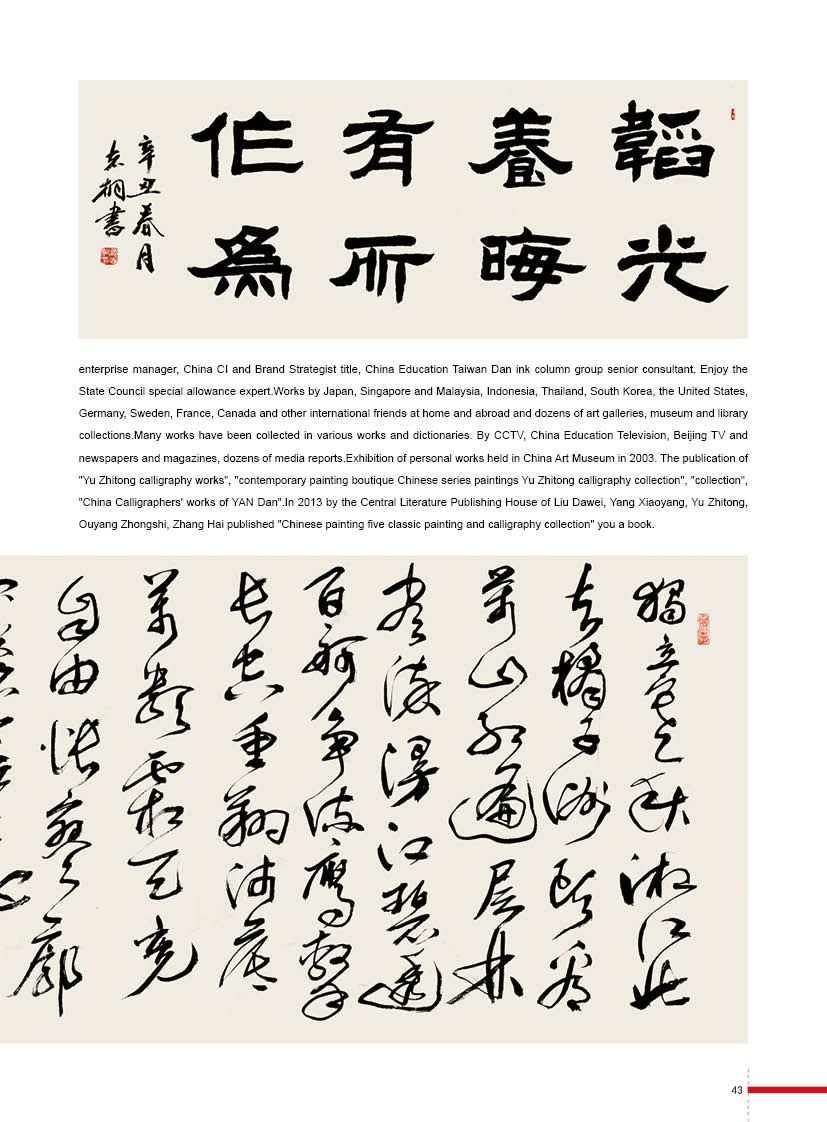 韜光
養晦
有所
作為
辛丑春月
志桐書
enterprise manager, China CI and Brand Strategist title, China Education Taiwan Dan ink column group senior consultant. Enjoy the
State Council special allowance expert.Works by Japan, Singapore and Malaysia, Indonesia, Thailand, South Korea, the United States,
Germany, Sweden, France, Canada and other international friends at home and abroad and dozens of art galleries, museum and library
collections.Many works have been collected in various works and dictionaries. By CCTV, China Education Television, Beijing TV and
newspapers and magazines, dozens of media reports.Exhibition of personal works held in China Art Museum in 2003. The publication of
"Yu Zhitong calligraphy works", "contemporary painting boutique Chinese series paintings Yu Zhitong calligraphy collection", "collection",
"China Calligraphers' works of YAN Dan".In 2013 by the Central Literature Publishing House of Liu Dawei, Yang Xiaoyang, Yu Zhitong,
Ouyang Zhongshi, Zhang Hai published "Chinese painting five classic painting and calligraphy collection" you a book.
獨立寒秋湘江北
去橘子洲頭看
萬山紅遍层林
尽染漫江碧透
百舸爭流鷹擊
長空魚翔浅底
萬類霜天竞
自由悵寥廓
43